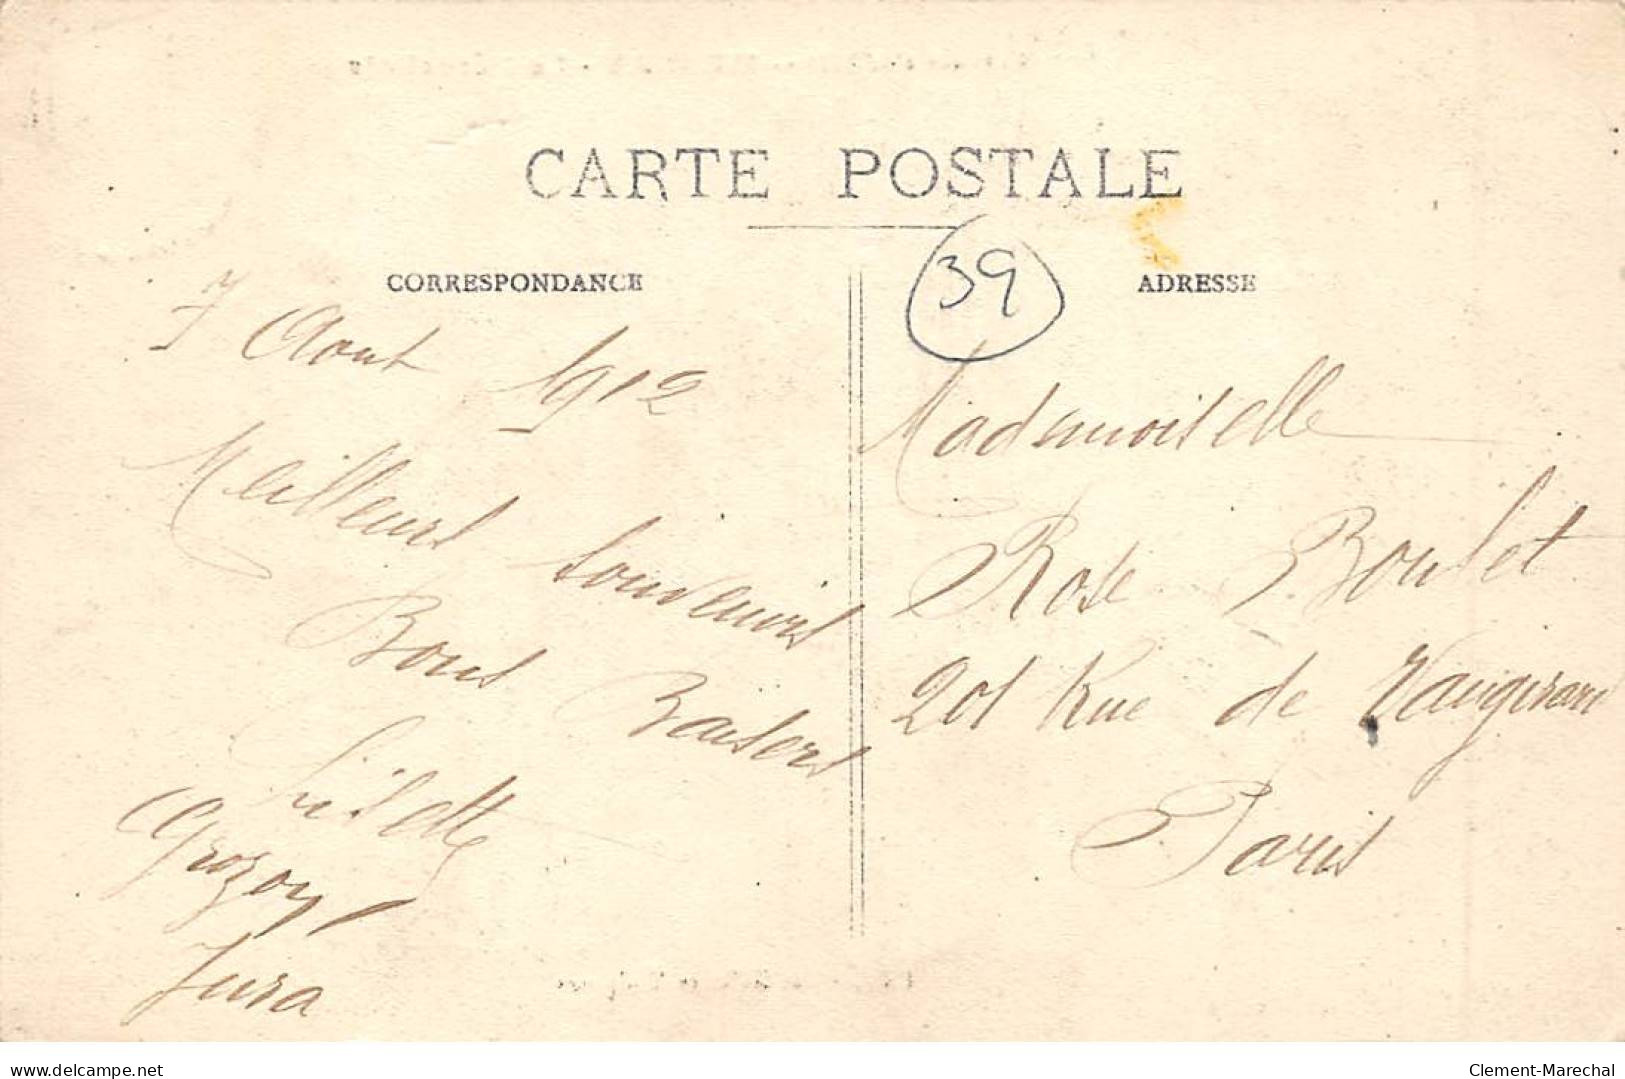 CARTE POSTALE
CORRESPONDANCE
39
ADRESSE
7 Aout 1912
Meilleurs Souvenirs
Bons Baisers
Lisette
Grozon
Jura
Mademoiselle
Rose Boulet
201 Rue de Vaugirard
Paris
www.delcampe.net
Clement-Marechal